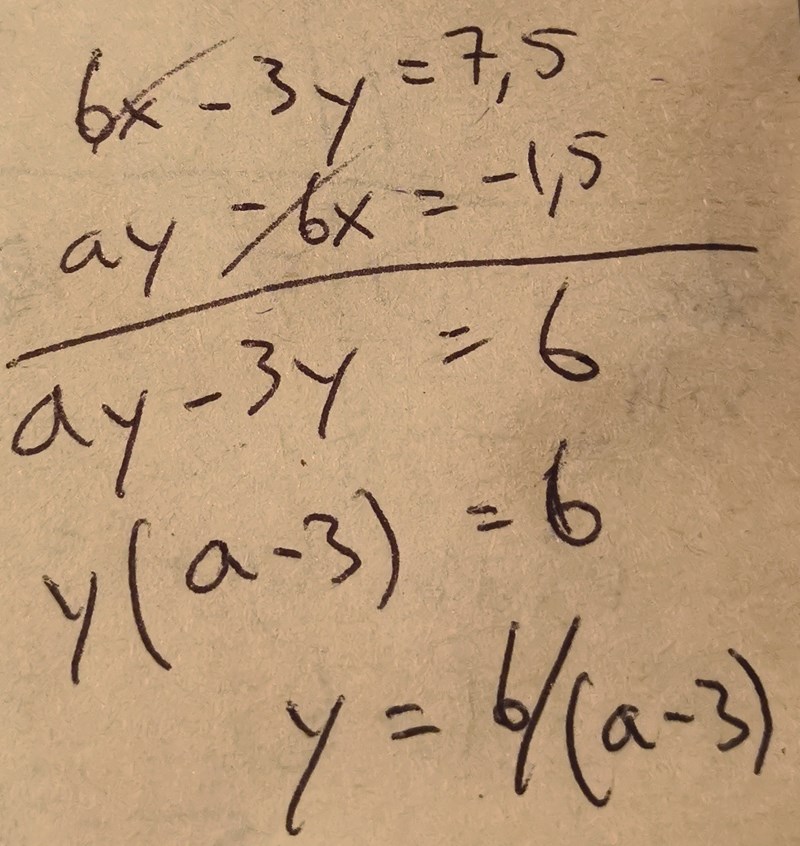 6x - 3y = 7,5
ay - 6x = -1,5
ay - 3y = 6
y(a-3) = 6
y = 6/(a-3)